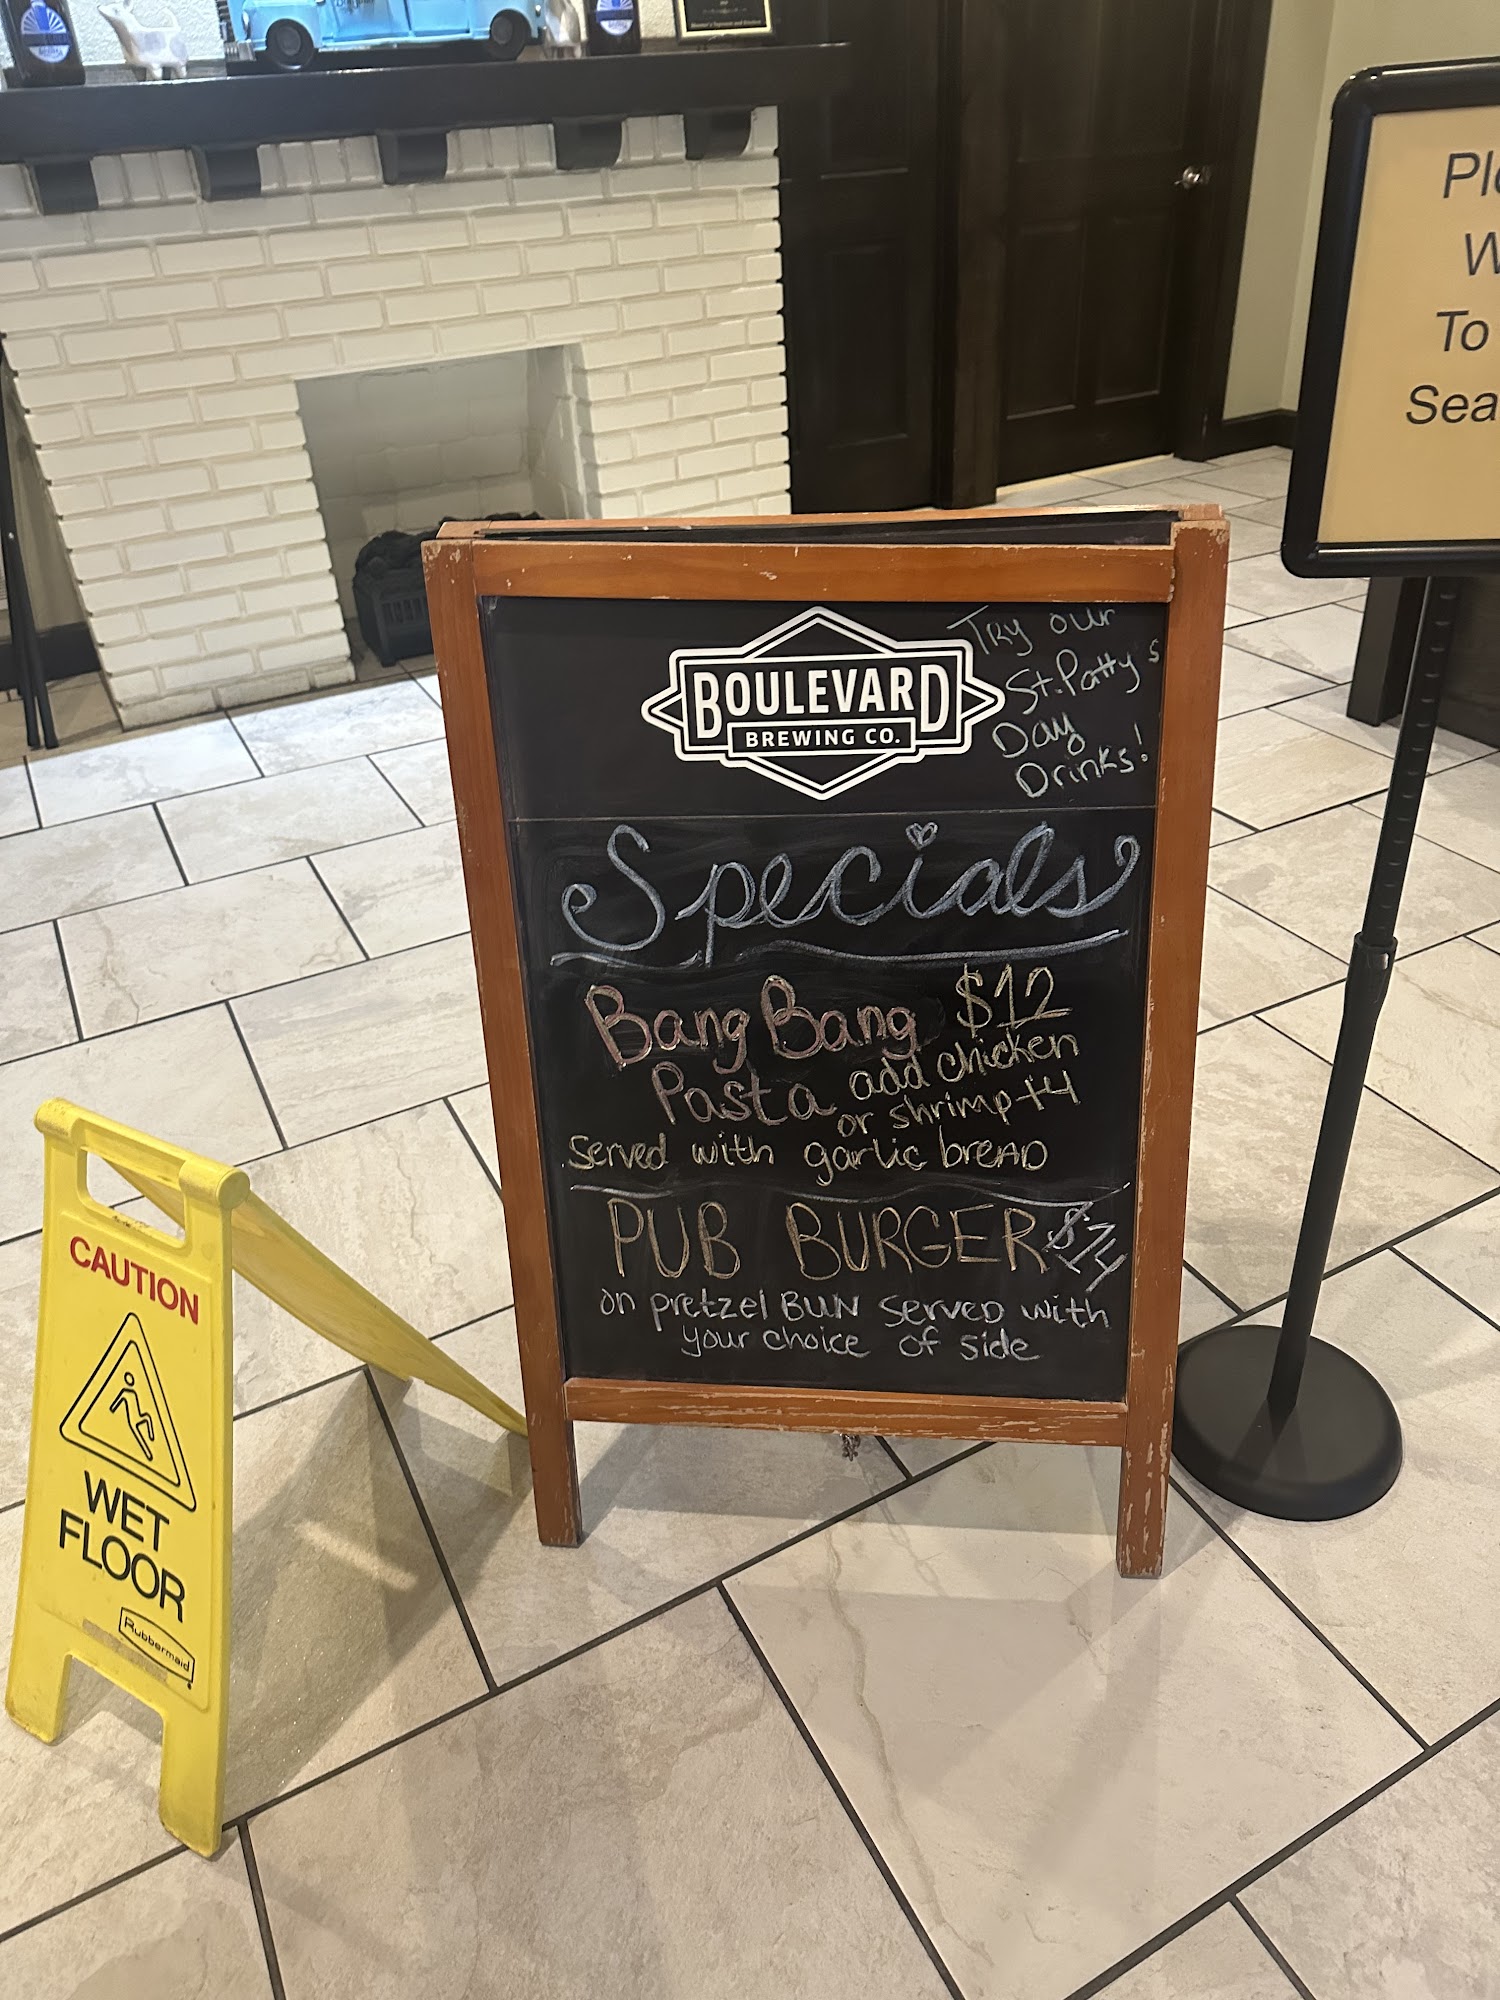 Try our
St. Patty s
Day
Drinks!
BOULEVARD
BREWING CO.
Specials
Bang Bang $12
Pasta add chicken
or shrimp +4
Served with garlic breAD
PUB BURGER $14
on pretzel BUN served with
your choice of side
CAUTION
WET
FLOOR
Rubbermaid
To